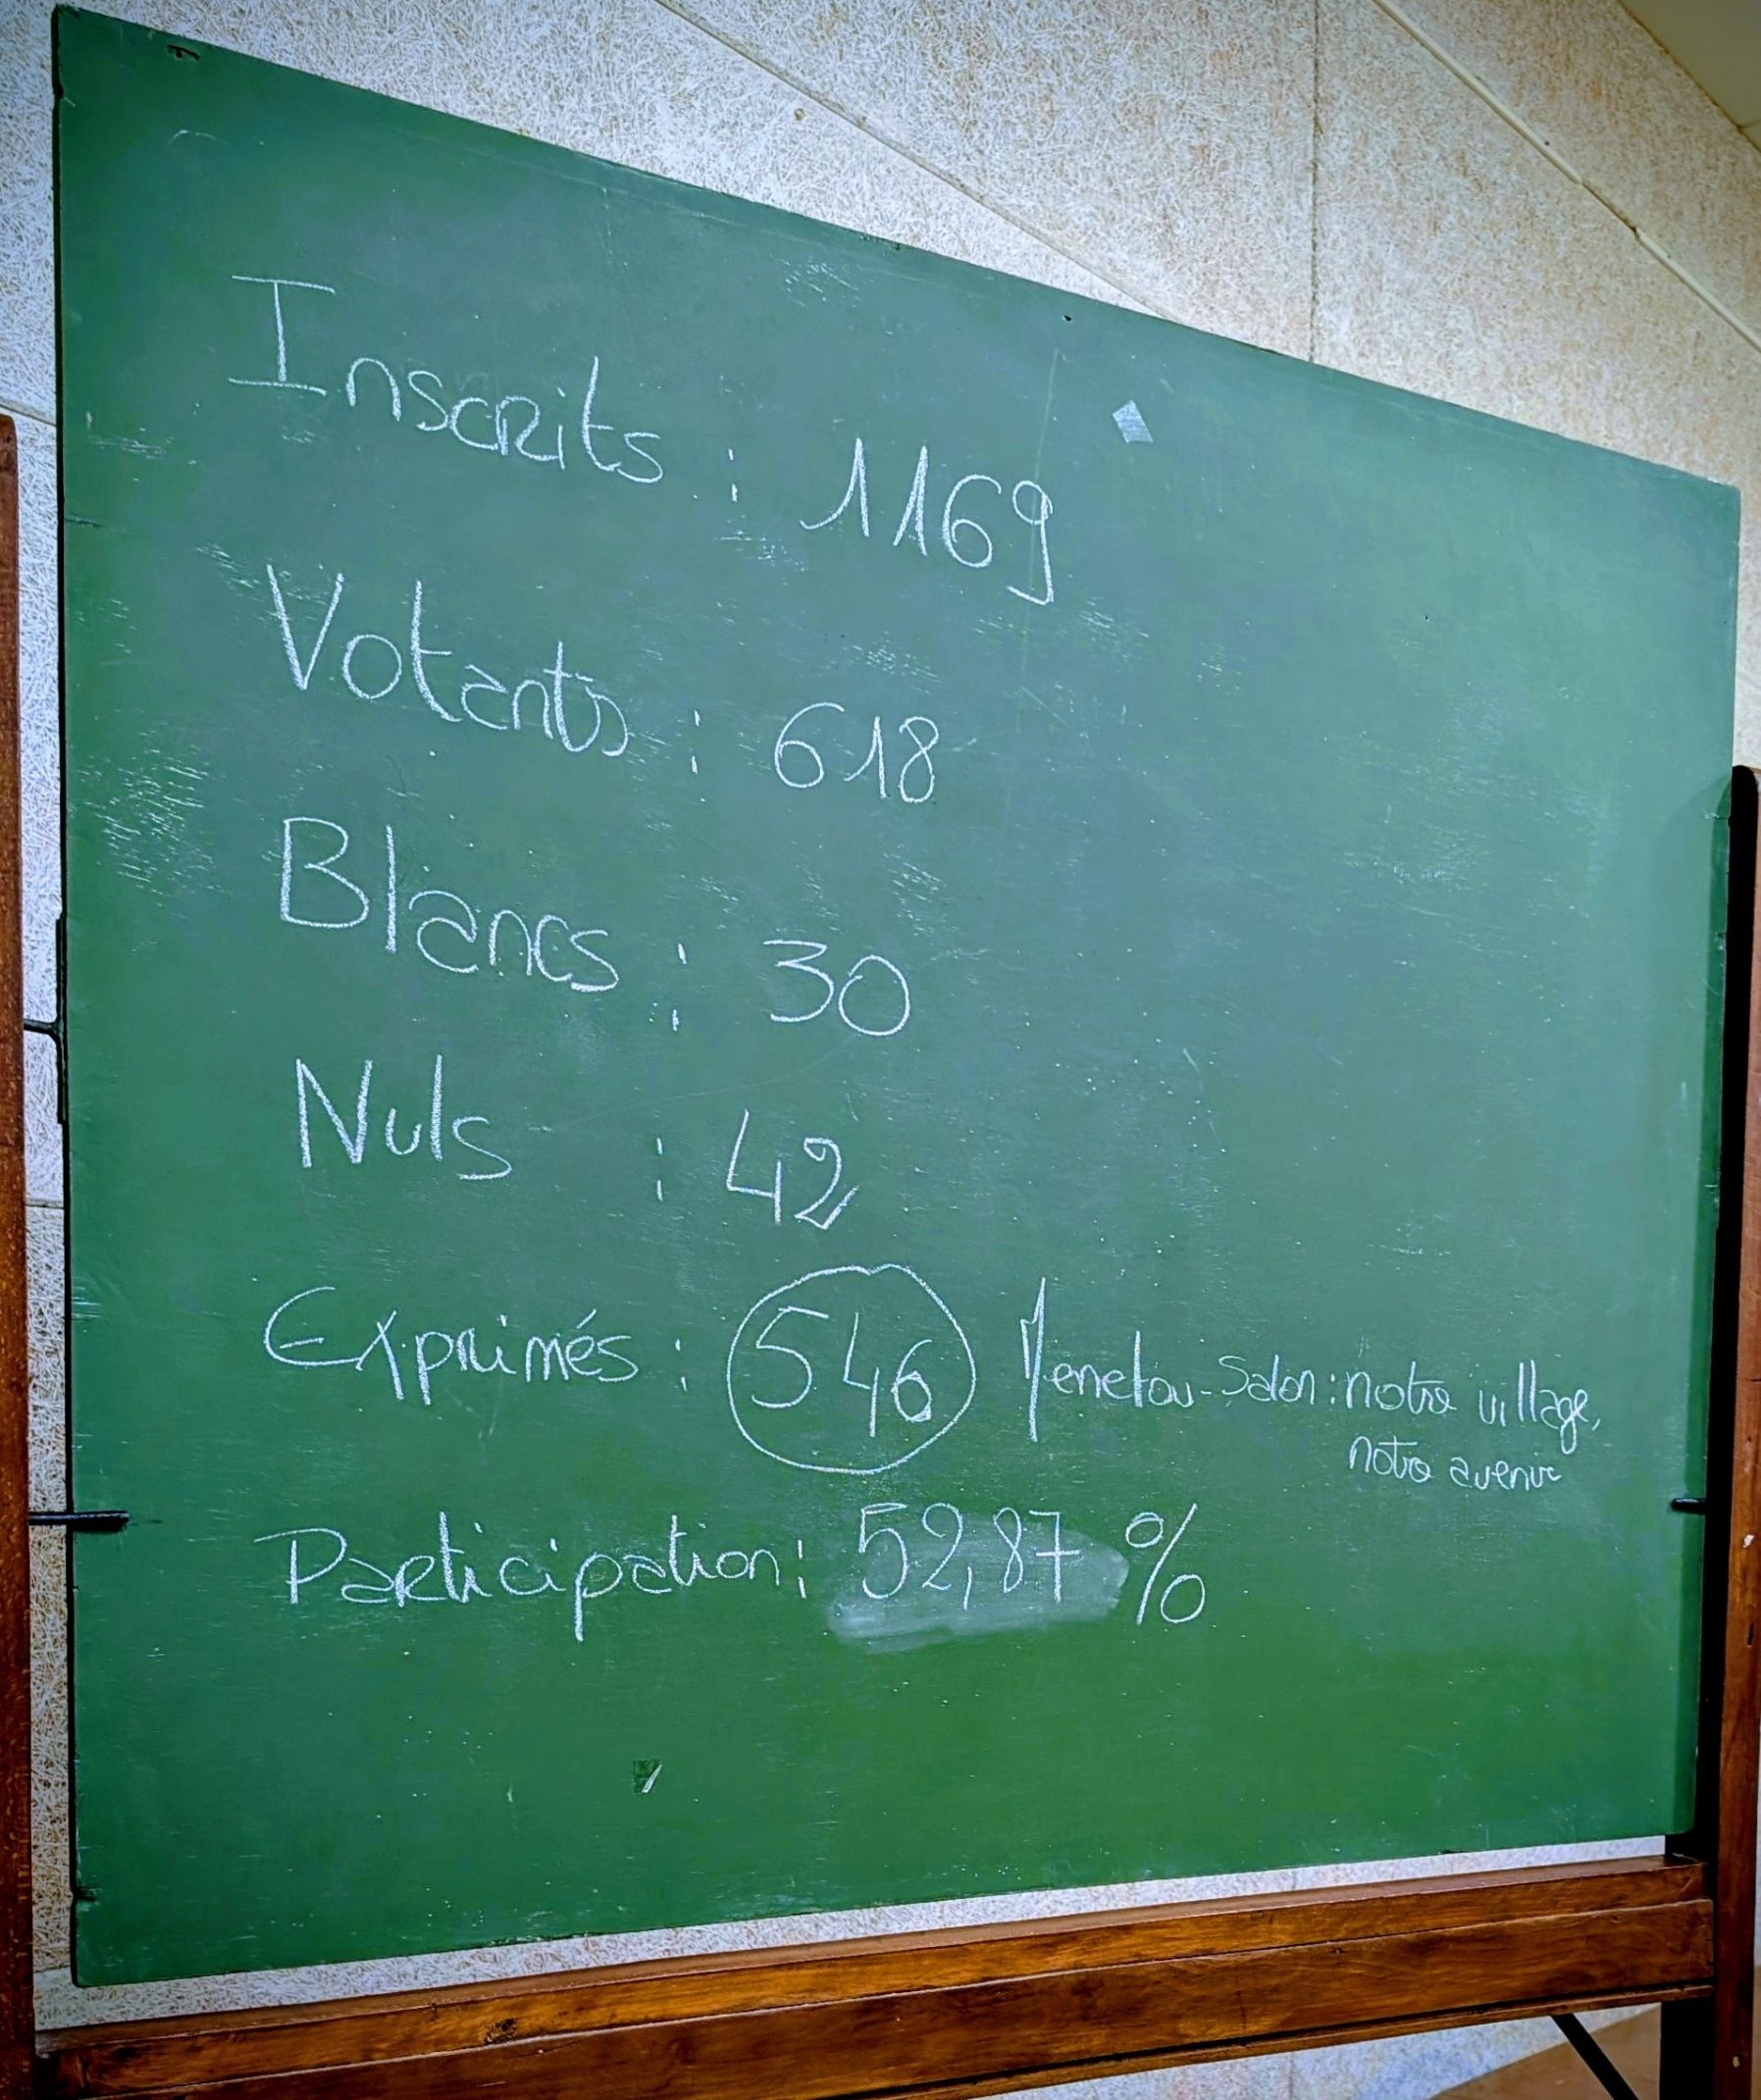 Inscrits : 1169
Votants : 618
Blancs : 30
Nuls : 42
Exprimés : 546 Menetou-Salon : notre village,
notre avenir
Participation : 52,87 %